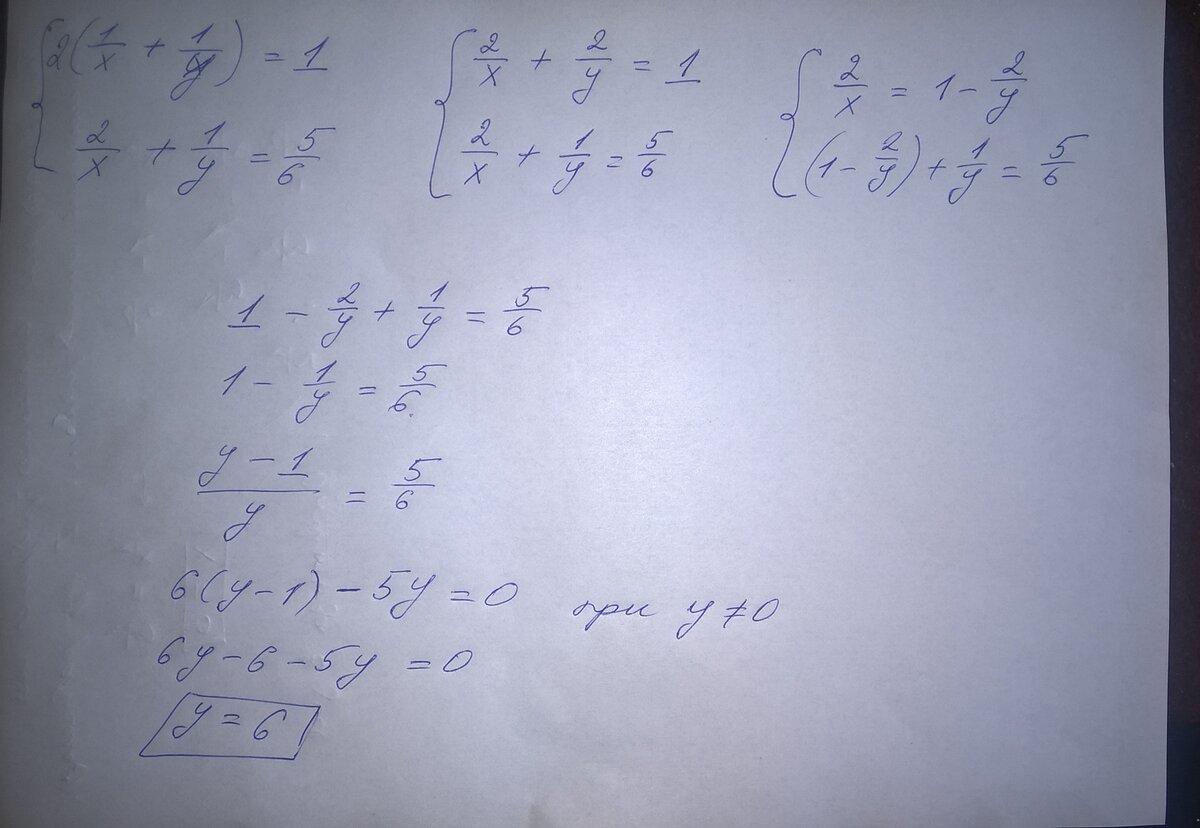 2(1/x + 1/y) = 1
2/x + 1/y = 5/6
2/x + 2/y = 1
2/x + 1/y = 5/6
2/x = 1 - 2/y
(1 - 2/y) + 1/y = 5/6
1 - 2/y + 1/y = 5/6
1 - 1/y = 5/6
(y - 1)/y = 5/6
6(y - 1) - 5y = 0 при y ≠ 0
6y - 6 - 5y = 0
y = 6